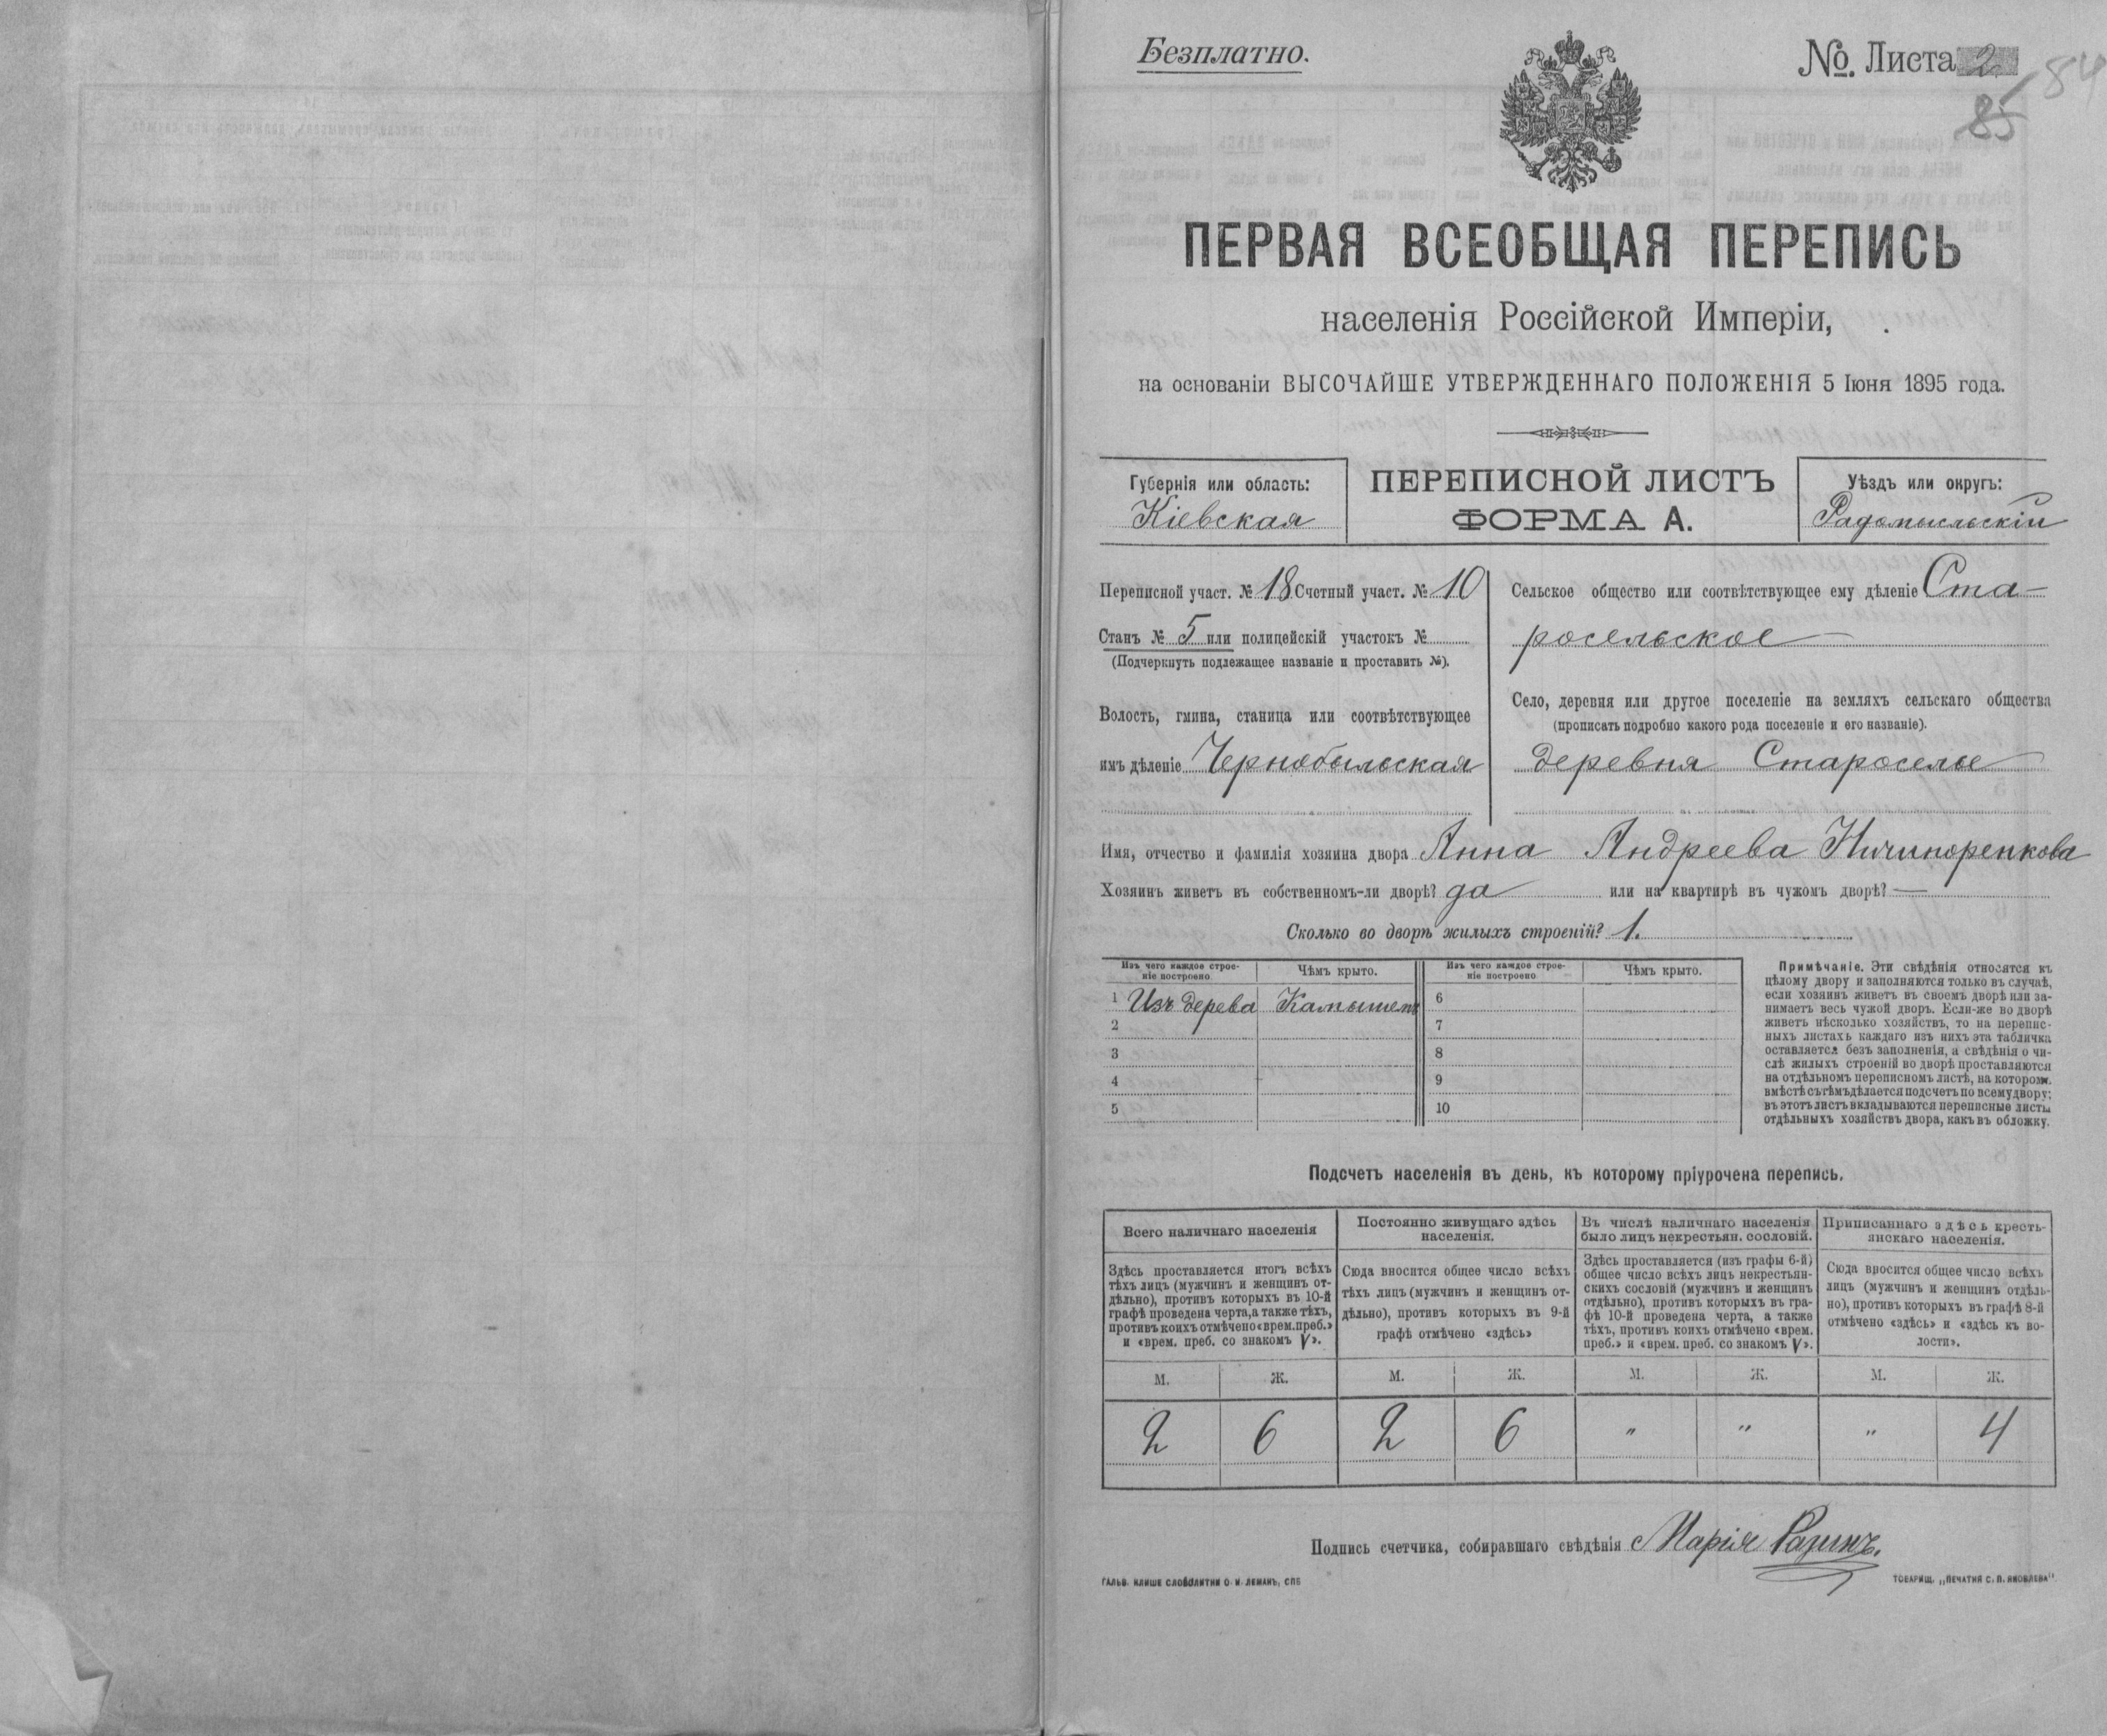 Безплатно.
№. Листа 2
85 84
ПЕРВАЯ ВСЕОБЩАЯ ПЕРЕПИСЬ
населенія Россійской Имперіи,
на основаніи ВЫСОЧАЙШЕ УТВЕРЖДЕННАГО ПОЛОЖЕНІЯ 5 Іюня 1895 года.
Губернія или область:
Кіевская
ПЕРЕПИСНОЙ ЛИСТЪ
ФОРМА А.
Уѣздъ или округъ:
Радомысльскій
Переписной участ. № 18 Счетный участ. № 10
Станъ № 5 или полицейскій участокъ №
(Подчеркнуть подлежащее названіе и проставить №).
Волость, гмина, станица или соотвѣтствующее
имъ дѣленіе Чернобыльская
Сельское общество или соотвѣтствующее ему дѣленіе Ста-
росельское
Село, деревня или другое поселеніе на земляхъ сельскаго общества
(прописать подробно какого рода поселеніе и его названіе).
деревня Староселье
Имя, отчество и фамилія хозяина двора Анна Андреева Ничипоренкова
Хозяинъ живетъ въ собственномъ-ли дворѣ? да или на квартирѣ въ чужомъ дворѣ? —
Сколько во дворѣ жилыхъ строеній? 1.
Изъ чего каждое строе-
ніе построено
Чѣмъ крыто.
Изъ чего каждое строе-
ніе построено
Чѣмъ крыто.
1 Изъ дерева Камышемъ 6
2 7
3 8
4 9
5 10
Примѣчаніе. Эти свѣдѣнія относятся къ
цѣлому двору и заполняются только въ случаѣ,
если хозяинъ живетъ въ своемъ дворѣ или за-
нимаетъ весь чужой дворъ. Если-же во дворѣ
живетъ нѣсколько хозяйствъ, то на перепис-
ныхъ листахъ каждаго изъ нихъ эта табличка
оставляется безъ заполненія, а свѣдѣнія о чи-
слѣ жилыхъ строеній во дворѣ проставляются
на отдѣльномъ переписномъ листѣ, на котором.
вмѣстѣ съ тѣмъ дѣлается подсчетъ по всему двору;
въ этотъ листъ вкладываются переписные листы
отдѣльныхъ хозяйствъ двора, какъ въ обложку.
Подсчетъ населенія въ день, къ которому пріурочена перепись.
Всего наличнаго населенія
Постоянно живущаго здѣсь
населенія.
Въ числѣ наличнаго населенія
было лицъ некрестьян. сословій.
Приписаннаго здѣсь кресть-
янскаго населенія.
Здѣсь проставляется итогъ всѣхъ
тѣхъ лицъ (мужчинъ и женщинъ от-
дѣльно), противъ которыхъ въ 10-й
графѣ проведена черта, а также тѣхъ,
противъ коихъ отмѣчено «врем. преб.»
и «врем. преб. со знакомъ V».
Сюда вносится общее число всѣхъ
тѣхъ лицъ (мужчинъ и женщинъ от-
дѣльно), противъ которыхъ въ 9-й
графѣ отмѣчено «здѣсь»
Здѣсь проставляется (изъ графы 6-й)
общее число всѣхъ лицъ некрестьян-
скихъ сословій (мужчинъ и женщинъ
отдѣльно), противъ которыхъ въ гра-
фѣ 10-й проведена черта, а также
тѣхъ, противъ коихъ отмѣчено «врем.
преб.» и «врем. преб. со знакомъ V».
Сюда вносится общее число всѣхъ
лицъ (мужчинъ и женщинъ отдѣль-
но), противъ которыхъ въ графѣ 8-й
отмѣчено «здѣсь» и «здѣсь къ во-
лости».
М. Ж. М. Ж. М. Ж. М. Ж.
2 6 2 6 " " " 4
Подпись счетчика, собиравшаго свѣдѣнія Марія Разинъ.
ГАЛЬВ. КЛИШЕ СЛОВОЛИТНИ О. И. ЛЕМАНЪ, СПБ
ТОВАРИЩ. „ПЕЧАТНЯ С. П. ЯКОВЛЕВА"